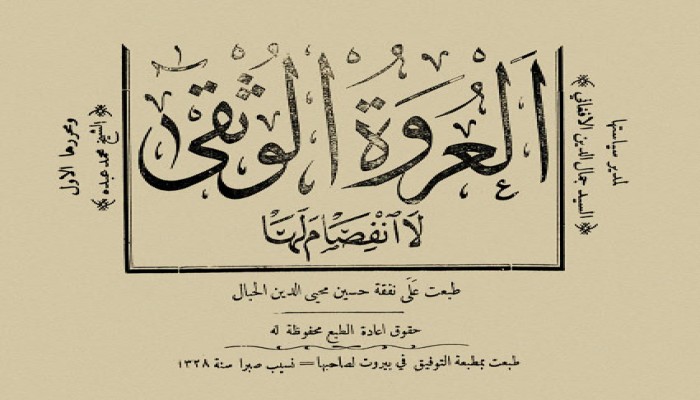 العروة الوثقى
لَا ٱنْفِصَامَ لَهَا
لمدير سياستها
﴿ السيد جمال الدين الافغاني ﴾
ومحررها الاول
﴿ الشيخ محمد عبده ﴾
طبعت عَلَى نفقة حسين محيي الدين الحبال
حقوق اعادة الطبع محفوظة له
طبعت بمطبعة التوفيق في بيروت لصاحبها = نسيب صبرا سنة ١٣٢٨